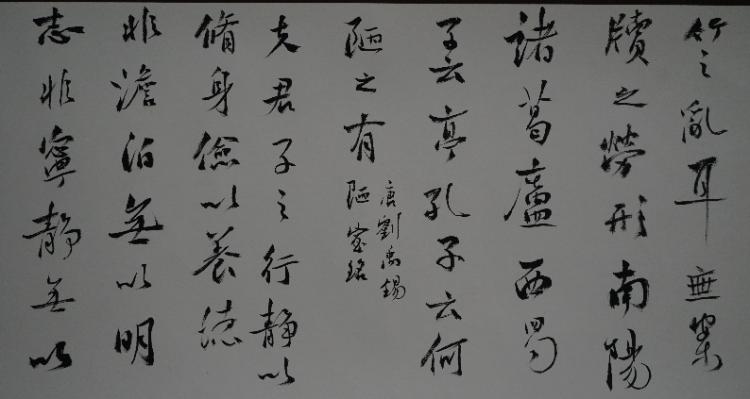 竹之亂耳無案
牘之勞形南陽
諸葛廬西蜀
子云亭孔子云何
陋之有
唐劉禹錫
陋室銘
夫君子之行靜以
脩身儉以養德
非澹泊無以明
志非寧靜無以